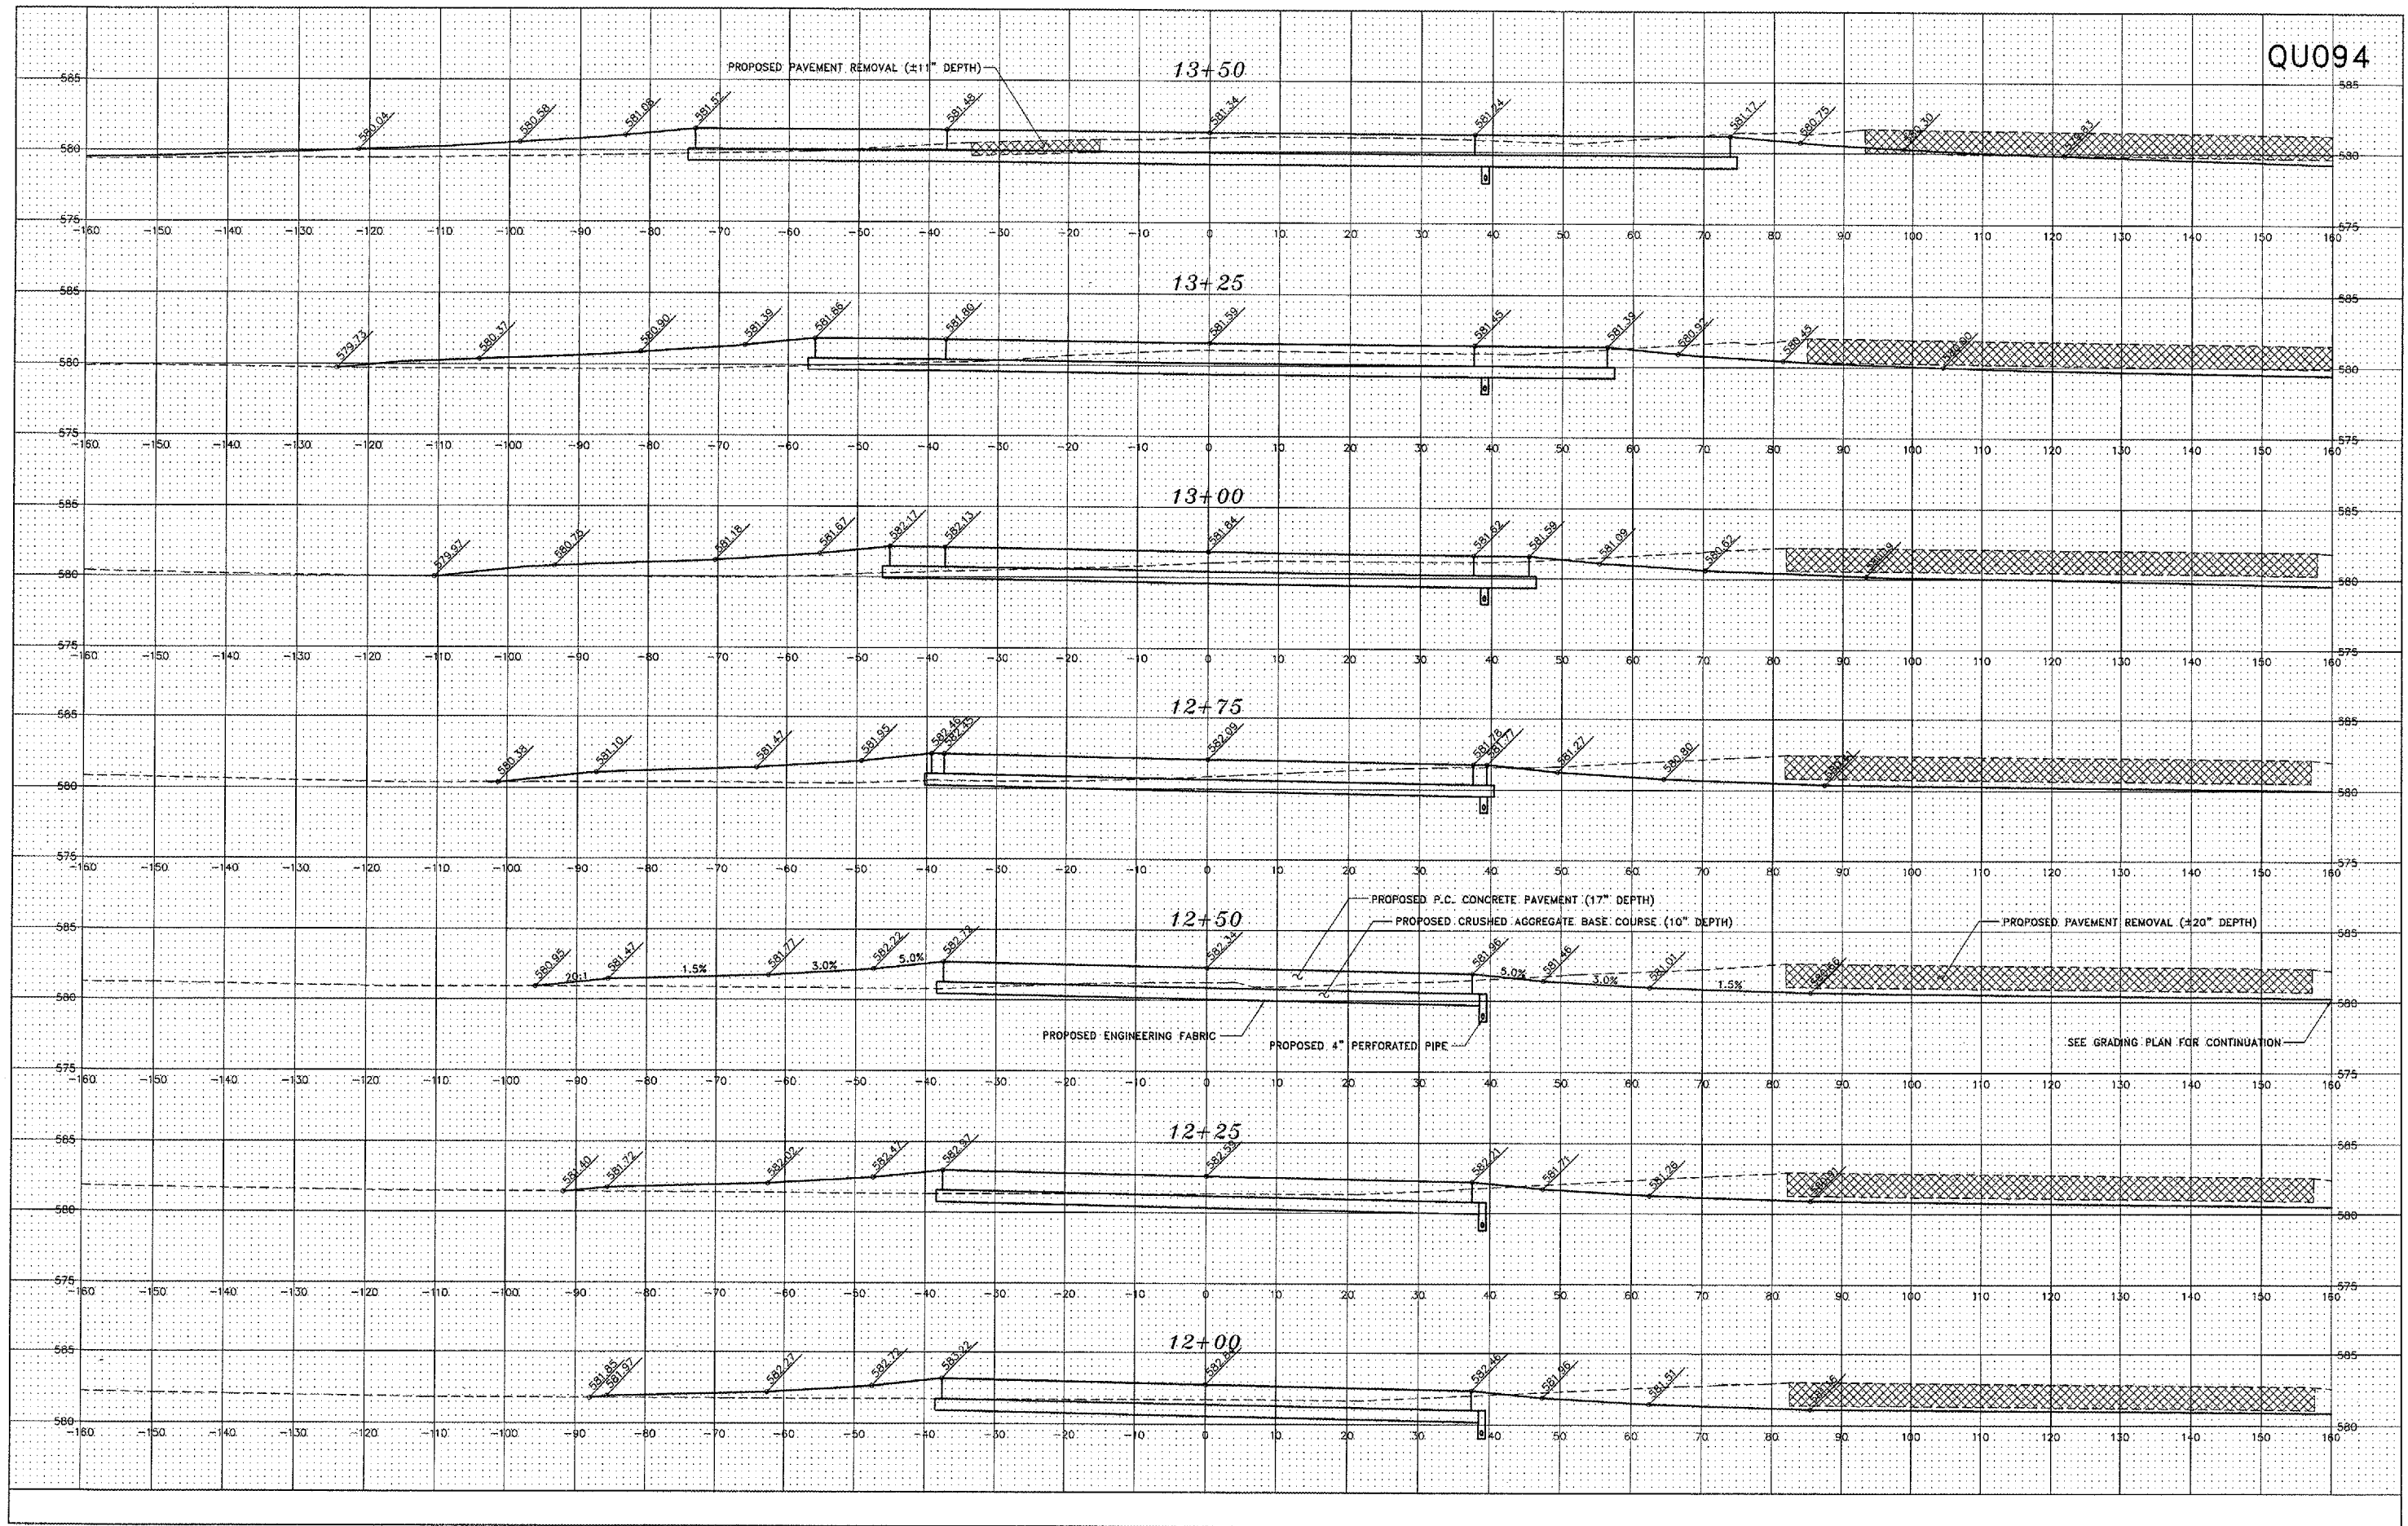 QU094
13+50
PROPOSED PAVEMENT REMOVAL (±11" DEPTH)
585 585
580.04 580.58 581.08 581.52 581.48 581.34 581.24 581.17 580.75 580.30 579.83
580 580
575 575
-160 -150 -140 -130 -120 -110 -100 -90 -80 -70 -60 -50 -40 -30 -20 -10 0 10 20 30 40 50 60 70 80 90 100 110 120 130 140 150 160
13+25
585 585
579.73 580.37 580.90 581.39 581.80 581.59 581.45 581.39 580.92 580.45
580 580
575 575
-160 -150 -140 -130 -120 -110 -100 -90 -80 -70 -60 -50 -40 -30 -20 -10 0 10 20 30 40 50 60 70 80 90 100 110 120 130 140 150 160
13+00
585 585
579.97 580.78 581.18 581.67 582.17 582.13 581.84 581.62 581.59 581.09 580.62
580 580
575 575
-160 -150 -140 -130 -120 -110 -100 -90 -80 -70 -60 -50 -40 -30 -20 -10 0 10 20 30 40 50 60 70 80 90 100 110 120 130 140 150 160
12+75
585 585
580.38 581.10 581.47 581.95 582.46 582.45 582.09 581.78 581.77 581.27 580.80
580 580
575 575
-160 -150 -140 -130 -120 -110 -100 -90 -80 -70 -60 -50 -40 -30 -20 -10 0 10 20 30 40 50 60 70 80 90 100 110 120 130 140 150 160
PROPOSED P.C. CONCRETE PAVEMENT (17" DEPTH)
12+50
PROPOSED CRUSHED AGGREGATE BASE COURSE (10" DEPTH)
PROPOSED PAVEMENT REMOVAL (±20" DEPTH)
585 585
580.95 581.47 581.77 582.22 582.72 582.34 581.96 581.46 581.01 580.66
20:1 1.5% 3.0% 5.0% 5.0% 3.0% 1.5%
580 580
PROPOSED ENGINEERING FABRIC
PROPOSED 4" PERFORATED PIPE
SEE GRADING PLAN FOR CONTINUATION
575 575
-160 -150 -140 -130 -120 -110 -100 -90 -80 -70 -60 -50 -40 -30 -20 -10 0 10 20 30 40 50 60 70 80 90 100 110 120 130 140 150 160
12+25
585 585
581.40 581.72 582.02 582.47 582.97 582.59 582.21 581.71 581.26 580.91
580 580
575 575
-160 -150 -140 -130 -120 -110 -100 -90 -80 -70 -60 -50 -40 -30 -20 -10 0 10 20 30 40 50 60 70 80 90 100 110 120 130 140 150 160
12+00
585 585
581.85 581.97 582.27 582.72 583.22 582.84 582.46 581.96 581.51 581.16
580 580
-160 -150 -140 -130 -120 -110 -100 -90 -80 -70 -60 -50 -40 -30 -20 -10 0 10 20 30 40 50 60 70 80 90 100 110 120 130 140 150 160